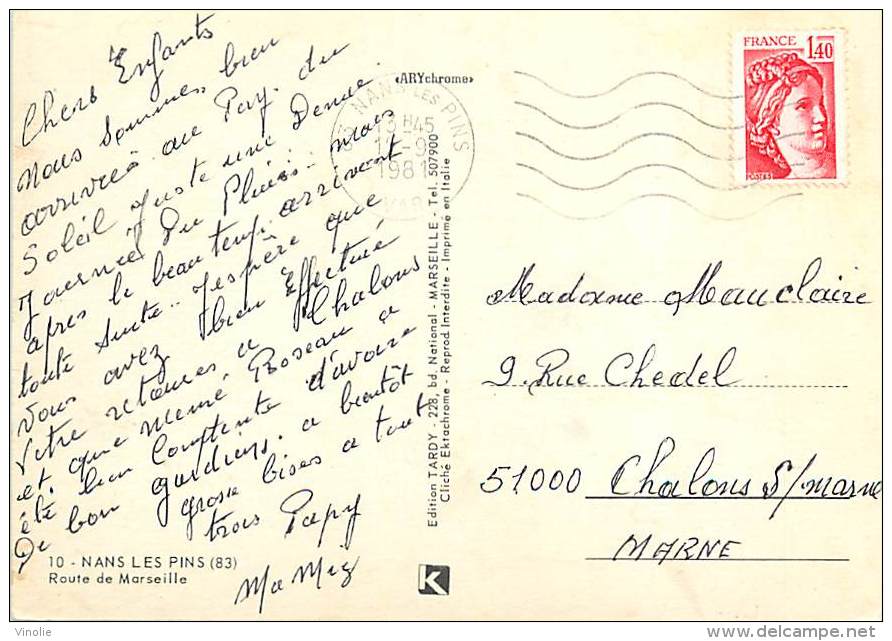 Chers Enfants
Nous sommes bien
arrivées au Pay. du
Soleil Juste une Demie
Journée Du Pluies.. mais
apres le beau temp. arrivent
toute suite.. J'espère que
vous avez bien Effectué
Votre retoures a Chalons
et que memé Roseau a
été bien Contente d'avoire
De bon gardiens. a bientôt
grosse bises a tout
trois Papy
Mamey
10 - NANS LES PINS (83)
Route de Marseille
«ARYchrome»
Edition TARDY - 228, bd. National - MARSEILLE - Tel. 507900
Cliché Ektachrome - Reprod. Interdite - Imprimé en Italie
K
NANS LES PINS
13H45
1981
VAR
FRANCE
1,40
Madame Mauclaire
9. Rue Chedel
51000 Chalons S/marne
MARNE
Vinolie
www.delcampe.net